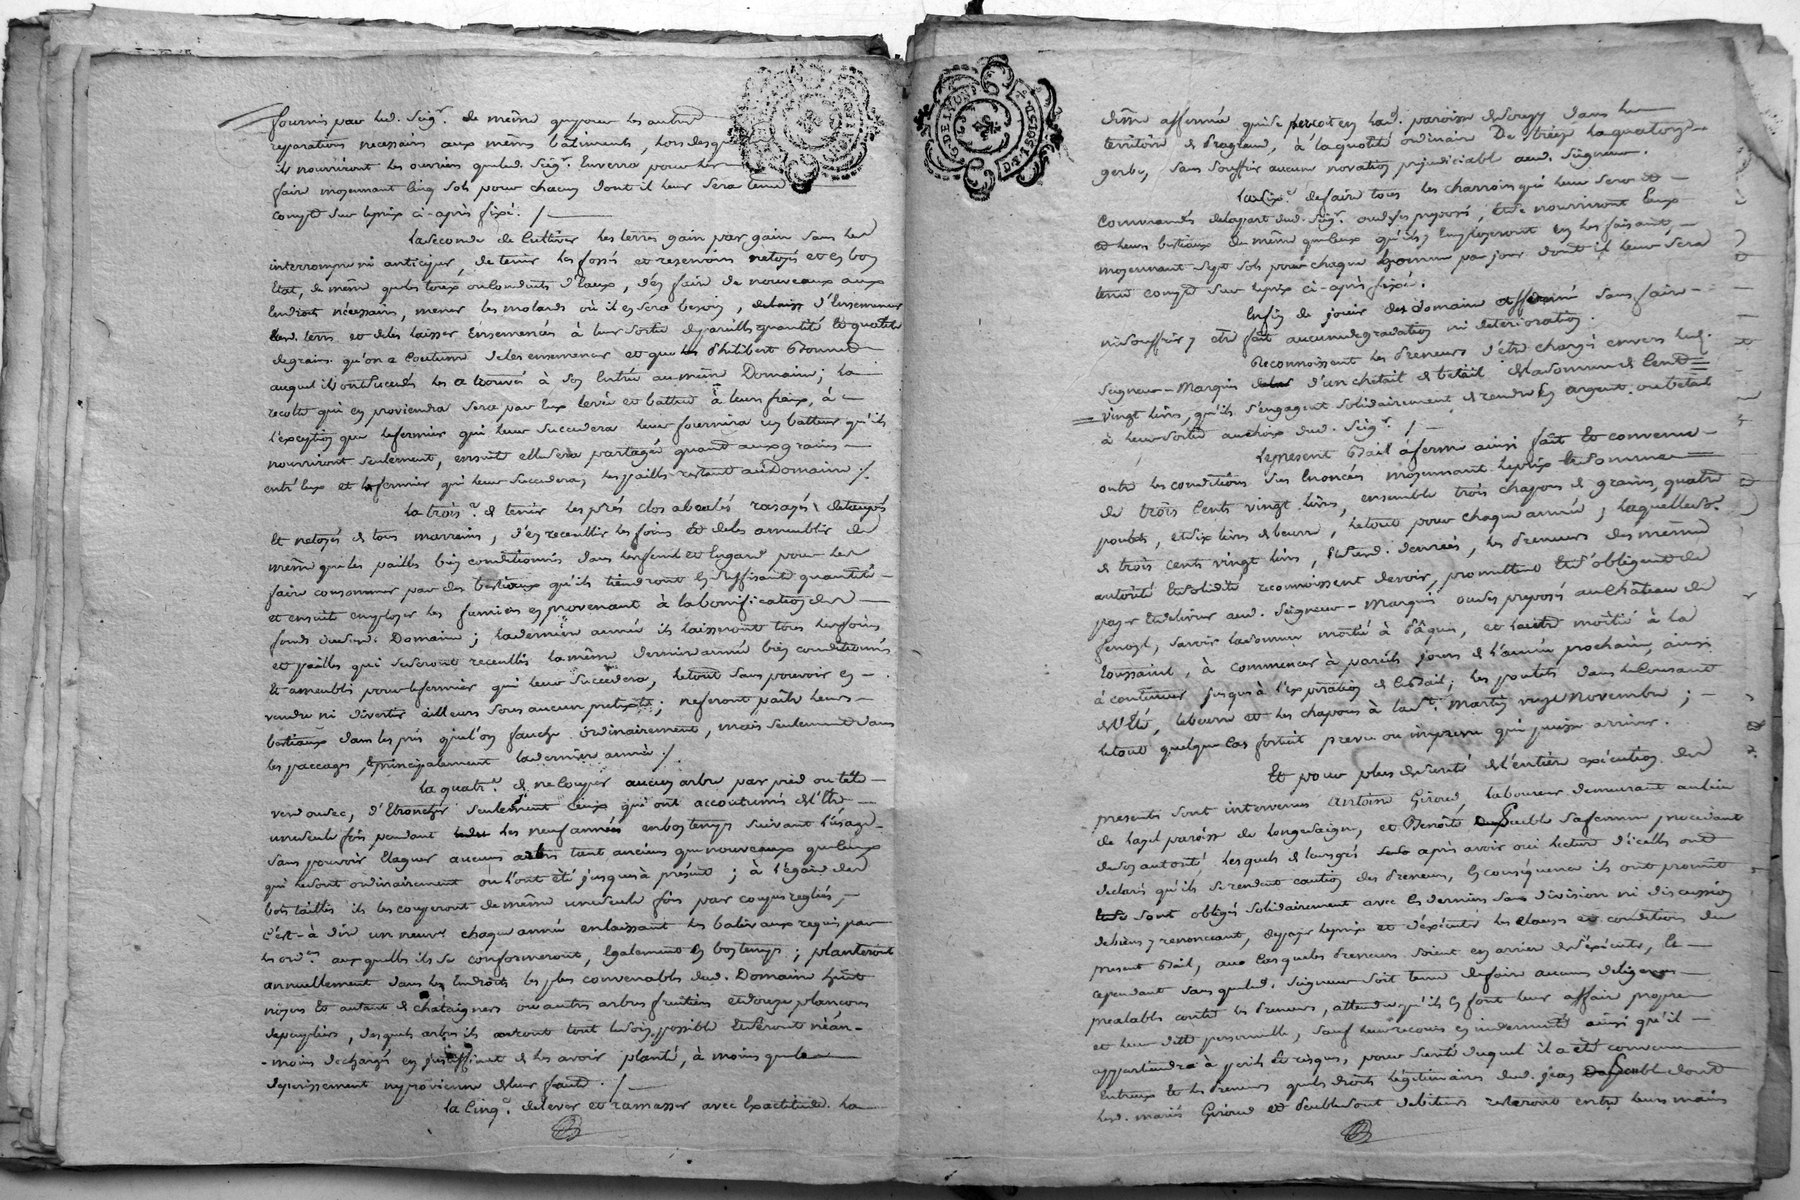 fournis par led. Seigr. de même que pour les autres
reparations necessaires aux mêmes batimens, lors desquelles
ils nourriront les ouvriers que led. Seigr. Enverra pour les
faire moyennant Cinq Sols pour chacun dont il leur Sera tenu
compte sur le prix ci-après fixé. /
la Seconde de Cultiver les terres gain par gain sans les
interrompre ni anticiper, de tenir les fossés et reservoirs netoyés et en bon
Etat, de même que les conduits d'Eaux, d'en faire de nouveaux aux
Endroits nécessaires, mener les molards où il en sera besoin, d'Ensemencer
lesd. terres et de les laisser Ensemencées à leur Sortie de pareille quantité et qualité
de grains qu'on a Coutume de les ensemencer et que Philibert Bonnet
auquel ils ont Succedés les a trouvé à son Entrée au même Domaine; la
recolte qui en proviendra Sera par Eux levée et battue à leurs fraix, à
l'exception que le fermier qui leur Succedera leur fournira un batteur qu'ils
nourriront seulement, ensuite elle sera partagée quant aux grains
entr'Eux et le fermier qui leur Succedera, les pailles restant au Domaine /.
la troise. de tenir les prés clos abealés rasapés
Et netoyés de tous marrains, d'en recueillir les foins Et de les ameublir de
même que les pailles bien conditionnés dans les fenils et Engard pour les
faire consommer par des bestiaux qu'ils tiendront en Suffisante quantité
et ensuite employer les fumiers en provenant à la bonification des
fonds dud. Domaine; la derniere année ils laisseront tous les foins
et pailles qui Seront recueillis la même derniere année bien conditionnés
Et ameublis pour le fermier qui leur Succedera, le tout Sans pouvoir en
vendre ni divertir ailleurs Sous aucun prétexte; ne feront paitre leurs
bestiaux dans les prés qu'on fauche ordinairement, mais seulement dans
les paccages, Et principalement la derniere année /.
la quatre. de ne Couper aucun arbre par pied ou tête
verd ou sec, d'Etroncher Seulement Ceux qui ont accoutumés de l'Etre
une seule fois pendant les neuf années en bon temps suivant l'usage
sans pouvoir Elaguer aucuns arbres tant anciens que nouveaux que Ceux
qui le sont ordinairement ou l'ont été jusques à présent; à l'égard des
bois taillis ils les couperont de même une seule fois par coupes reglées,
C'est-à-dire un neuve. chaque année en laissant les baliveaux requis par
les ordces. auxquelles ils Se conformeront, Egalement En bon temps; planteront
annuellement dans les Endroits les plus convenables dud. Domaine huit
noyers Et autant de chataigniers ou autres arbres fruitiers et douze plançons
de peupliers, desquels arbres ils auront tout le soin possible Et Seront néan-
-moins dechargés en justiffiant de les avoir planté, à moins que le
deperissement ne provienne de leur faute. /
la Cinqe. de lever et ramasser avec Exactitude la
G. DE LYON
dixme affermée qui se perçoit en lad. paroisse de Croupy dans le
territoire de Dragteaud, à la quotité ordinaire De treize la quatorze
gerbe, Sans Souffrir aucune novation préjudiciable aud. Seigneur.
la Sixe. de faire tous les charrois qui leur Seront
Commandés de la part dud. Seigr. ou de ses préposés, Et de nourriront Eux
et leurs bestiaux de même que Ceux qu'ils y Employeront En les faisant,
moyennant Sept Sols pour chaque homme par jour dont il leur sera
tenu compte sur le prix ci-après fixé.
Enfin de jouir des domaine affermé Sans faire
ni souffrir y etre fait aucune dégradation ni deterioration.
Reconnoissent les Preneurs d'être chargés envers led.
Seigneur-Marquis d'un cheteil de betail de la Somme de Cent
vingt livres, qu'ils s'engagent solidairement de rendre En argent ou betail
à leur sortie au choix dud. Seigr. /
le present Bail à ferme ainsi fait Et convenu
outre les conditions Sus Enoncées moyennant le prix Et Somme
de trois Cents vingt livres, ensemble trois chapons de grains, quatre
poulets, et dix livres de beurre, le tout pour chaque année; laquelle So.
de trois Cents vingt livres, Et Susd. denrées, les Preneurs des mêmes
autorité Et Solidité reconnoissent devoir, promettent Et S'obligent de
payer Et delivrer aud. Seigneur-Marquis ou à ses preposés au Château de
fenoyl, Savoir la Somme moitié à Pâques, et l'autre moitié à la
Toussaint, à commencer à pareils jours de l'année prochaine, ainsi
à continuer jusques à l'expiration de ce Bail; les poulets dans le Courant
de l'Eté, le beurre et les chapons à la St. Martin onze Novembre;
le tout quelque Cas fortuit prévu ou imprévu qui puisse arriver.
Et pour plus de sureté de l'entière exécution des
presents Sont intervenus Antoine Giroud, laboureur demeurant au lieu
de Lazel paroisse de Longesaigne, et Benoîte Sa femme procédant
de son autorité, lesquels de leurs grés après avoir oui lecture d'icelles ont
declaré qu'ils Se rendent caution des Preneurs, En conséquence ils ont promis
Et se Sont obligés solidairement avec les derniers Sans division ni discussion
de biens y renonceant, de payer le prix et d'exécuter les clauses et conditions du
present Bail, aux Cas que les Preneurs soient en arriere de l'exécuter,
cependant Sans que led. Seigneur soit tenu de faire aucunes diligences
prealables contre les Preneurs, attendu qu'ils En font leur affaire propre
et leur dette personnelle, Sauf leur recours en indemnité ainsi qu'il
appartiendra à perils Et risques, pour Sureté duquel il a été convenu
Entreux Et les Preneurs que les droits légitimaires dud. Jean dont
lesd. mariés Giroud et sont debiteurs resteront entre leurs mains